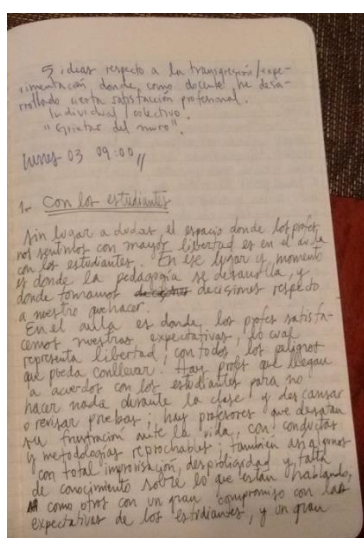 5 ideas respecto a la transgresión/expe-
rimentación donde, como docente he desa-
rrollado cierta satisfacción profesional.
Individual / colectivo
"Grietas del muro".
Lunes 03 09:00 //
1- Con los estudiantes
Sin lugar a dudas, el espacio donde los profes
nos sentimos con mayor libertad es en el aula
con los estudiantes. En ese lugar y momento
es donde la pedagogía se desarrolla, y
donde tomamos decisiones respecto
a nuestro quehacer.
En el aula es donde, los profes satisfa-
cemos nuestras expectativas, lo cual
representa libertad, con todos los peligros
que pueda conllevar. Hay profes que llegan
a acuerdos con los estudiantes para no
hacer nada durante la clase y descansar
o revisar pruebas, hay profesores que desatan
su frustración ante la vida, con conductas
y metodologías reprochables, también
con total improvisación, desprolijidad y falta
de conocimiento sobre lo que están hablando,
como otros con un gran compromiso con las
expectativas de los estudiantes, y un gran